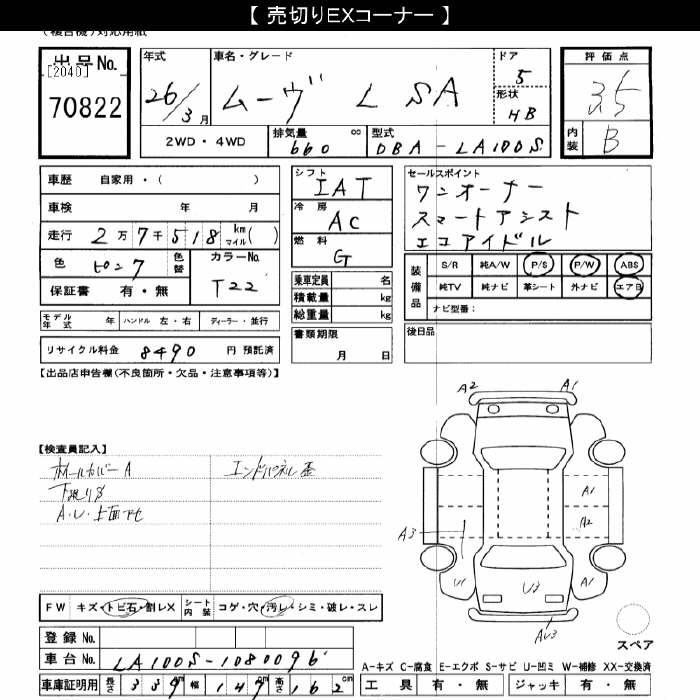 【 売切りEXコーナー 】
(複合機)対応用紙
出品No.
[2040]
70822
年式
26/3月
車名・グレード
ムーヴ L SA
ドア
5
形状
HB
評価点
3.5
内装
B
2WD・4WD
排気量
660 cc
型式
DBA-LA100S
車歴 自家用・( )
車検 年 月
走行 2万7千518 km マイル( )
色 ピンク 色替
カラーNo.
T22
保証書 有・無
モデル年式 年 ハンドル 左・右 ディーラー・並行
リサイクル料金 8490 円 預託済
シフト
IAT
冷房
AC
燃料
G
乗車定員 名
積載量 kg
総重量 kg
書類期限
月 日
セールスポイント
ワンオーナー
スマートアシスト
エコアイドル
装備品
S/R 純A/W P/S P/W ABS
純TV 純ナビ 革シート 外ナビ エアB
ナビ型番：
後日品
【出品店申告欄(不良箇所・欠品・注意事項等)】
【検査員記入】
ホイールカバーA
エンドパネル歪
下廻りサ
A・U・上面凹セ
A2 A1
A1
A2
A3
U1 U3 A1
AU3
スペア
FW キズ・トビ石・割レX
シート内装 コゲ・穴・汚レ・シミ・破レ・スレ
登録No.
車台No. LA100S-1080096
車庫証明用 長さ 339cm 幅 147cm 高さ 162cm
A-キズ C-腐食 E-エクボ S-サビ U-凹ミ W-補修 XX-交換済
工具 有・無 ジャッキ 有・無